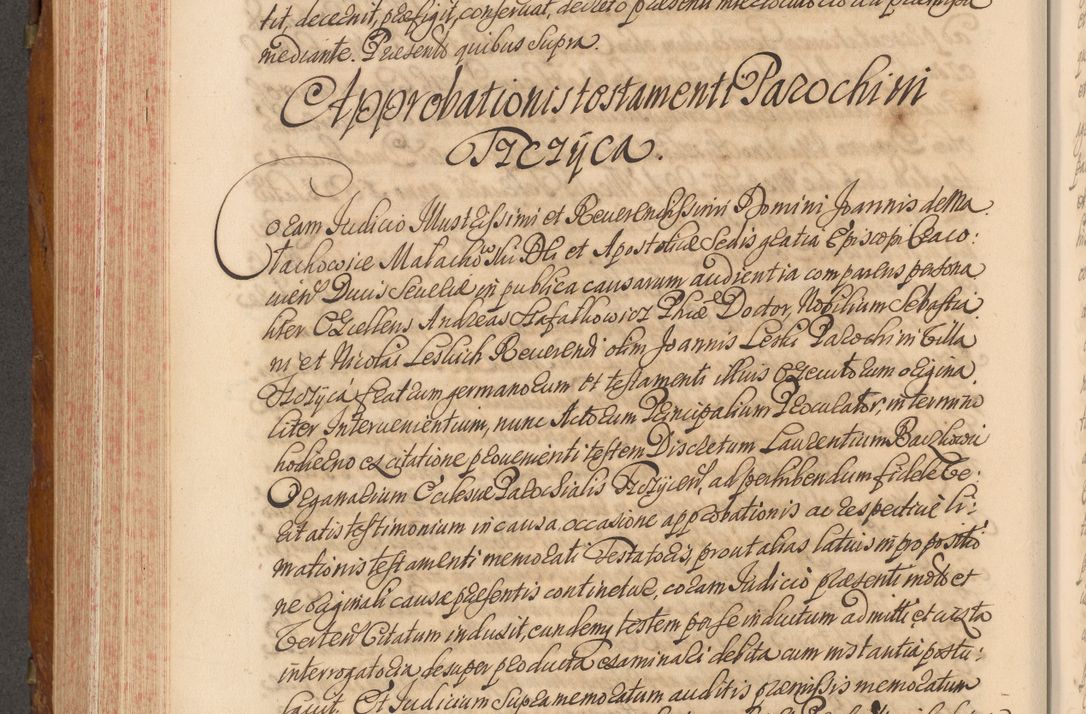 tit, decernit, præfigit, conservat, decreto præsenti
mediante. Præsentib quibus supra.
Approbationis testamenti Parochi in
Trczÿca.
Coram Judicio Illustrissimi et Reverendissimi Domini Joannis de Ma
łachowice Małachoski Dei et Apostolicæ Sedis gratia Episcopi Craco:
vien Ducis Severiæ in publica causarum audientia comparens persona
liter Excellens Andreas Rafałkowicz Phiæ Doctor, Nobilium Sebastia
ni et Nicolai Leskich Reverendi olim Joannis Leski Parochi in Villa
Trczÿca fratrum germanorum et testamenti illius executorum origina
liter Intervenientium, nunc Actorum Principalium Procurator, in termino
hodierno ex citatione provenienti testem Discretum Laurentium Baczkowi
Organarium Ecclesiæ Parochialis Trczÿcen, ad perhibendum fidele ve:
ritatis testimonium in causa occasione approbationis ac respective li:
mationis testamenti memorati Testatoris, prout alias latius in propositio
ne originali causæ præsentis continetur, coram Judicio præsenti modo et
citatum induxit, eundemq testem per se inductum admitti, et iuxta
interrogatoria desuper producta examinari debita cum instantia postu:
lavit. Et Judicium supramemoratum auditis præmissis memoratum